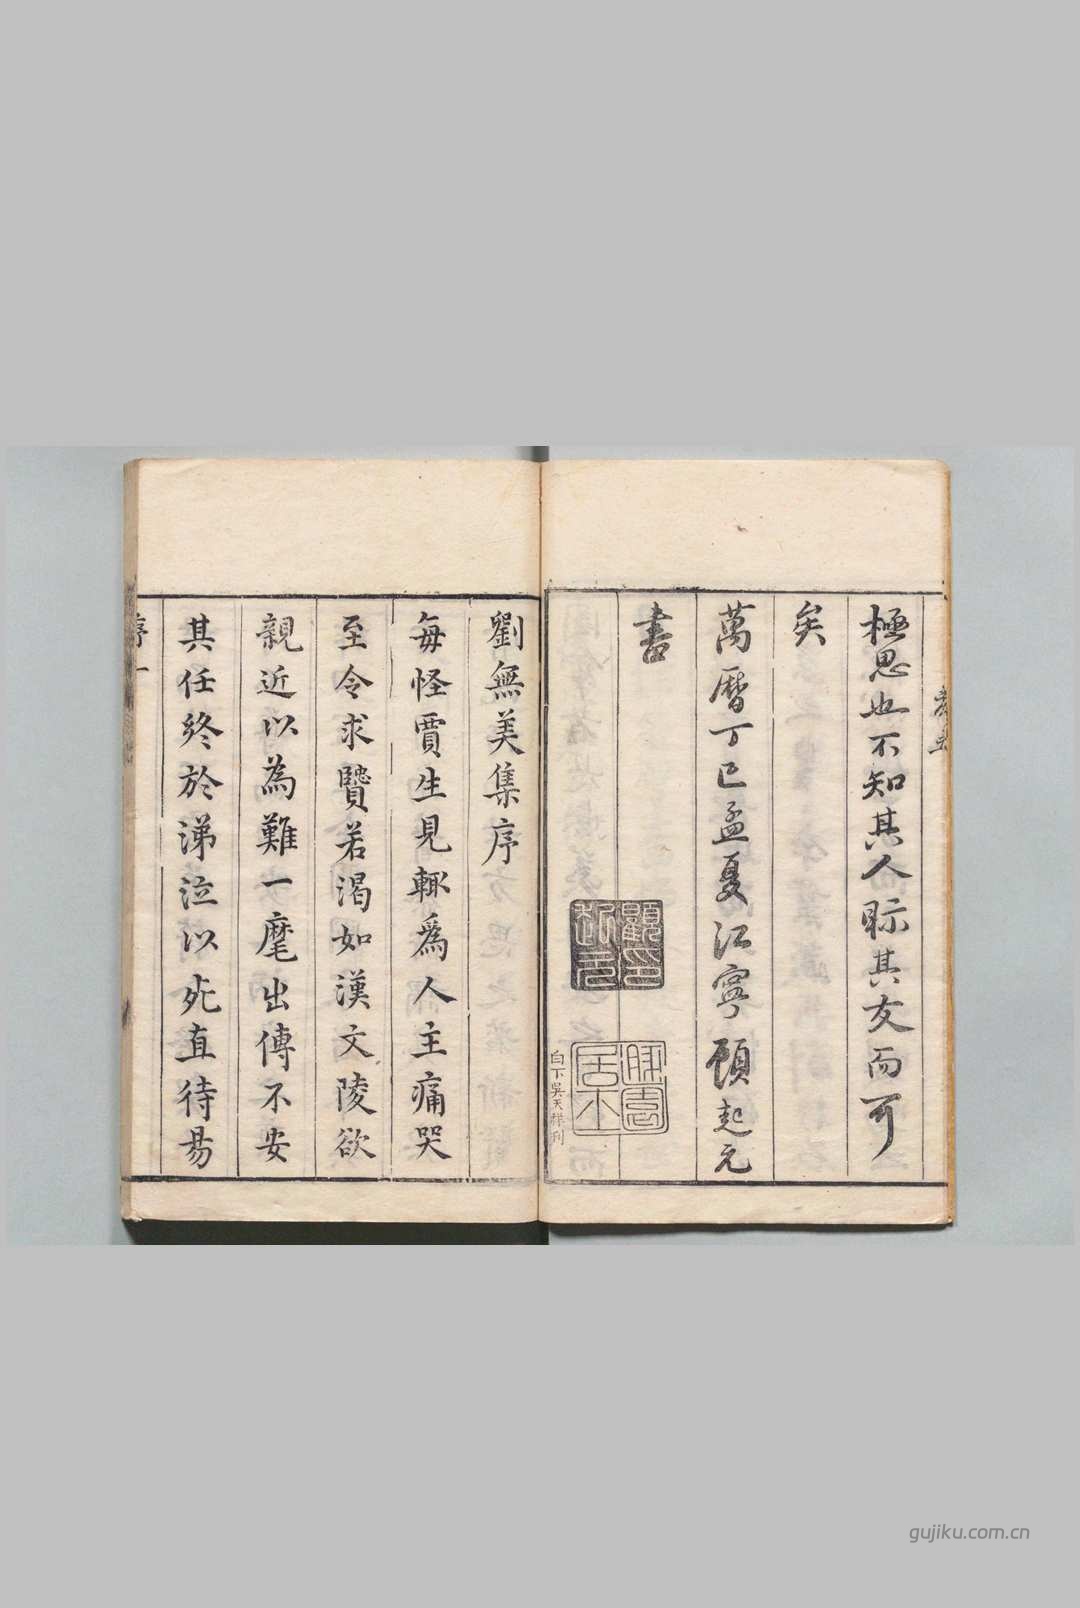 極思也不知其人眎其友而可
矣
萬曆丁巳孟夏江寧顧起元
書
顧起元印
白下吳天祥刊
劉無美集序
每怪賈生見輒為人主痛哭
至令求賢若渴如漢文陵欲
親近以為難一麾出傅不安
其任終於涕泣以死直待易
序一
gujiku.com.cn